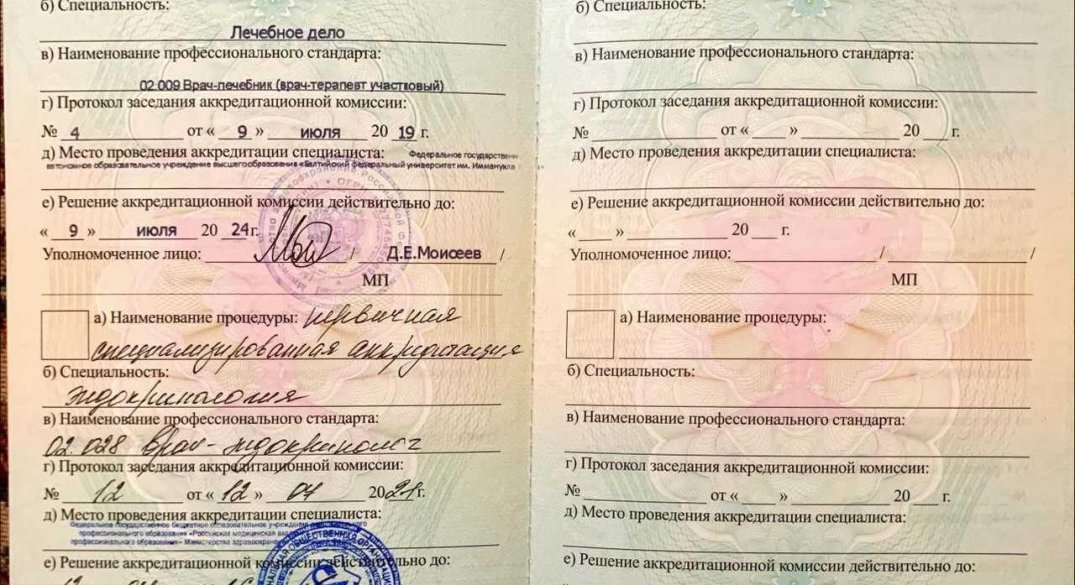 б) Специальность:
Лечебное дело
в) Наименование профессионального стандарта:
02.009 Врач-лечебник (врач-терапевт участковый)
г) Протокол заседания аккредитационной комиссии:
№ 4 от « 9 » июля 20 19 г.
д) Место проведения аккредитации специалиста: Федеральное государственн
автономное образовательное учреждение высшего образования «Балтийский федеральный университет им. Иммануила
е) Решение аккредитационной комиссии действительно до:
« 9 » июля 20 24 г.
Уполномоченное лицо: / Д.Е.Моисеев /
МП
а) Наименование процедуры: первичная
специализированная аккредитация
б) Специальность:
эндокринология
в) Наименование профессионального стандарта:
02.028 Врач-эндокринолог
г) Протокол заседания аккредитационной комиссии:
№ 12 от « 12 » 04 2021 г.
д) Место проведения аккредитации специалиста:
Федеральное государственное бюджетное образовательное учреждение
профессионального образования «Российская медицинская
профессионального образования» Министерства
е) Решение аккредитационной комиссии действительно до:
б) Специальность:
в) Наименование профессионального стандарта:
г) Протокол заседания аккредитационной комиссии:
№ от « » 20 г.
д) Место проведения аккредитации специалиста:
е) Решение аккредитационной комиссии действительно до:
« » 20 г.
Уполномоченное лицо: / /
МП
а) Наименование процедуры:
б) Специальность:
в) Наименование профессионального стандарта:
г) Протокол заседания аккредитационной комиссии:
№ от « » 20 г.
д) Место проведения аккредитации специалиста:
е) Решение аккредитационной комиссии действительно до: